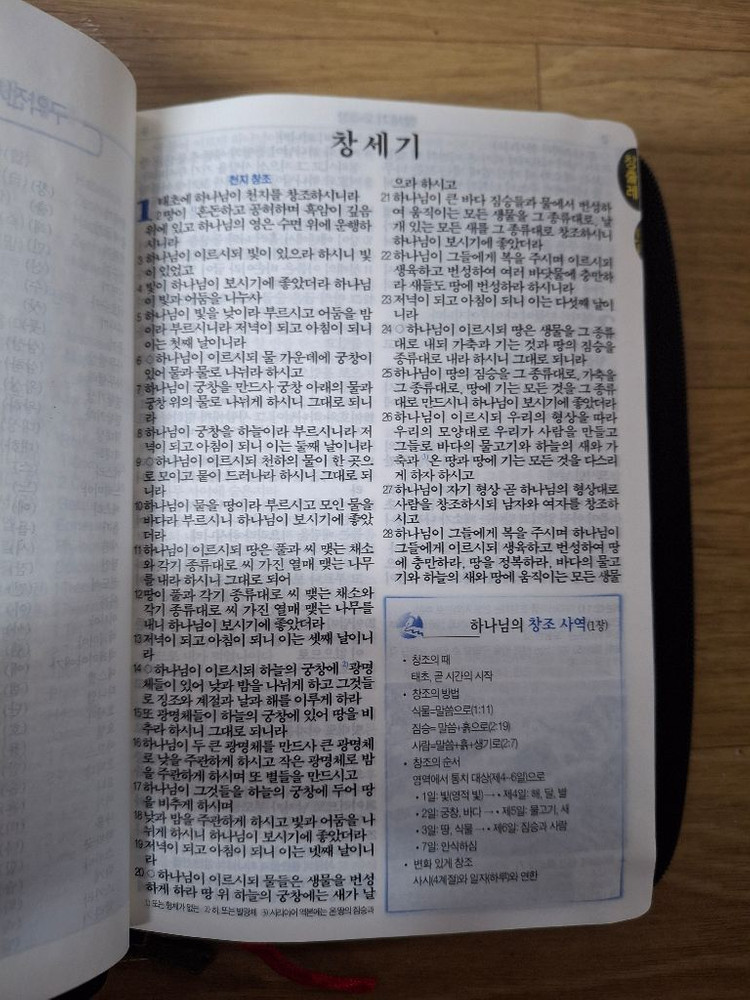 창세기
천지 창조
1 태초에 하나님이 천지를 창조하시니라
2 땅이 혼돈하고 공허하며 흑암이 깊음
위에 있고 하나님의 영은 수면 위에 운행하
시니라
3 하나님이 이르시되 빛이 있으라 하시니 빛
이 있었고
4 빛이 하나님이 보시기에 좋았더라 하나님
이 빛과 어둠을 나누사
5 하나님이 빛을 낮이라 부르시고 어둠을 밤
이라 부르시니라 저녁이 되고 아침이 되니
이는 첫째 날이니라
6 ○하나님이 이르시되 물 가운데에 궁창이
있어 물과 물로 나뉘라 하시고
7 하나님이 궁창을 만드사 궁창 아래의 물과
궁창 위의 물로 나뉘게 하시니 그대로 되니
라
8 하나님이 궁창을 하늘이라 부르시니라 저
녁이 되고 아침이 되니 이는 둘째 날이니라
9 ○하나님이 이르시되 천하의 물이 한 곳으
로 모이고 뭍이 드러나라 하시니 그대로 되
니라
10 하나님이 뭍을 땅이라 부르시고 모인 물을
바다라 부르시니 하나님이 보시기에 좋았
더라
11 하나님이 이르시되 땅은 풀과 씨 맺는 채소
와 각기 종류대로 씨 가진 열매 맺는 나무
를 내라 하시니 그대로 되어
12 땅이 풀과 각기 종류대로 씨 맺는 채소와
각기 종류대로 씨 가진 열매 맺는 나무를
내니 하나님이 보시기에 좋았더라
13 저녁이 되고 아침이 되니 이는 셋째 날이니
라
14 ○하나님이 이르시되 하늘의 궁창에 2)광명
체들이 있어 낮과 밤을 나뉘게 하고 그것들
로 징조와 계절과 날과 해를 이루게 하라
15 또 광명체들이 하늘의 궁창에 있어 땅을 비
추라 하시니 그대로 되니라
16 하나님이 두 큰 광명체를 만드사 큰 광명체
로 낮을 주관하게 하시고 작은 광명체로 밤
을 주관하게 하시며 또 별들을 만드시고
17 하나님이 그것들을 하늘의 궁창에 두어 땅
을 비추게 하시며
18 낮과 밤을 주관하게 하시고 빛과 어둠을 나
뉘게 하시니 하나님이 보시기에 좋았더라
19 저녁이 되고 아침이 되니 이는 넷째 날이니
라
20 ○하나님이 이르시되 물들은 생물을 번성
하게 하라 땅 위 하늘의 궁창에는 새가 날
1) 또는 형체가 없는 2) 히, 또는 발광체 3) 시리아어 역본에는 온 땅의 짐승과
으라 하시고
21 하나님이 큰 바다 짐승들과 물에서 번성하
여 움직이는 모든 생물을 그 종류대로, 날
개 있는 모든 새를 그 종류대로 창조하시니
하나님이 보시기에 좋았더라
22 하나님이 그들에게 복을 주시며 이르시되
생육하고 번성하여 여러 바닷물에 충만하
라 새들도 땅에 번성하라 하시니라
23 저녁이 되고 아침이 되니 이는 다섯째 날이
니라
24 ○하나님이 이르시되 땅은 생물을 그 종류
대로 내되 가축과 기는 것과 땅의 짐승을
종류대로 내라 하시니 그대로 되니라
25 하나님이 땅의 짐승을 그 종류대로, 가축을
그 종류대로, 땅에 기는 모든 것을 그 종류
대로 만드시니 하나님이 보시기에 좋았더라
26 하나님이 이르시되 우리의 형상을 따라
우리의 모양대로 우리가 사람을 만들고
그들로 바다의 물고기와 하늘의 새와 가
축과 3)온 땅과 땅에 기는 모든 것을 다스리
게 하자 하시고
27 하나님이 자기 형상 곧 하나님의 형상대로
사람을 창조하시되 남자와 여자를 창조하
시고
28 하나님이 그들에게 복을 주시며 하나님이
그들에게 이르시되 생육하고 번성하여 땅
에 충만하라, 땅을 정복하라, 바다의 물고
기와 하늘의 새와 땅에 움직이는 모든 생물
하나님의 창조 사역(1장)
• 창조의 때
태초, 곧 시간의 시작
• 창조의 방법
식물=말씀으로(1:11)
짐승= 말씀+흙으로(2:19)
사람=말씀+흙+생기로(2:7)
• 창조의 순서
영역에서 통치 대상(제4~6일)으로
• 1일: 빛(영적 빛) → • 제4일: 해, 달, 별
• 2일: 궁창, 바다 → • 제5일: 물고기, 새
• 3일: 땅, 식물 → • 제6일: 짐승과 사람
• 7일: 안식하심
• 변화 있게 창조
사시(4계절)와 일자(하루)와 연한